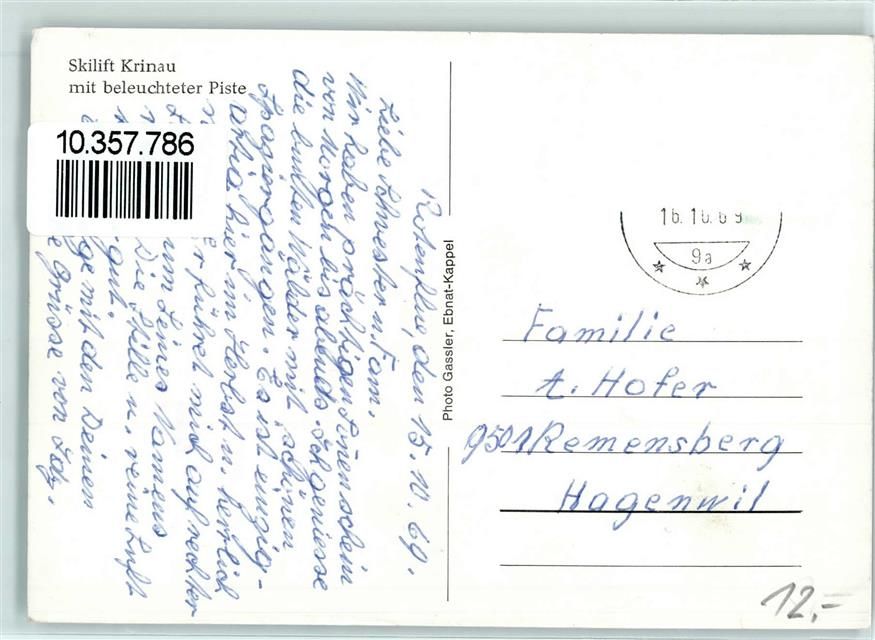 Skilift Krinau
mit beleuchteter Piste
10.357.786
Rotenflue, den 15. 10. 69.
Liebe Schwester u. Fam.
Wir haben prächtigen Sonnenschein
von Morgen bis abends. Ich geniesse
die bunten Wälder mit schönen
Spaziergängen. Es ist einzig-
artig hier im Herbst u. herrlich
er führet mich auf rechter
um Seines Namens
Die Stille u. reine Luft
gut.
mit den Deinen
Grüsse von
Photo Gassler, Ebnat-Kappel
16.10.69
9a
Familie
A. Hofer
9501 Remensberg
Hagenwil
12,-